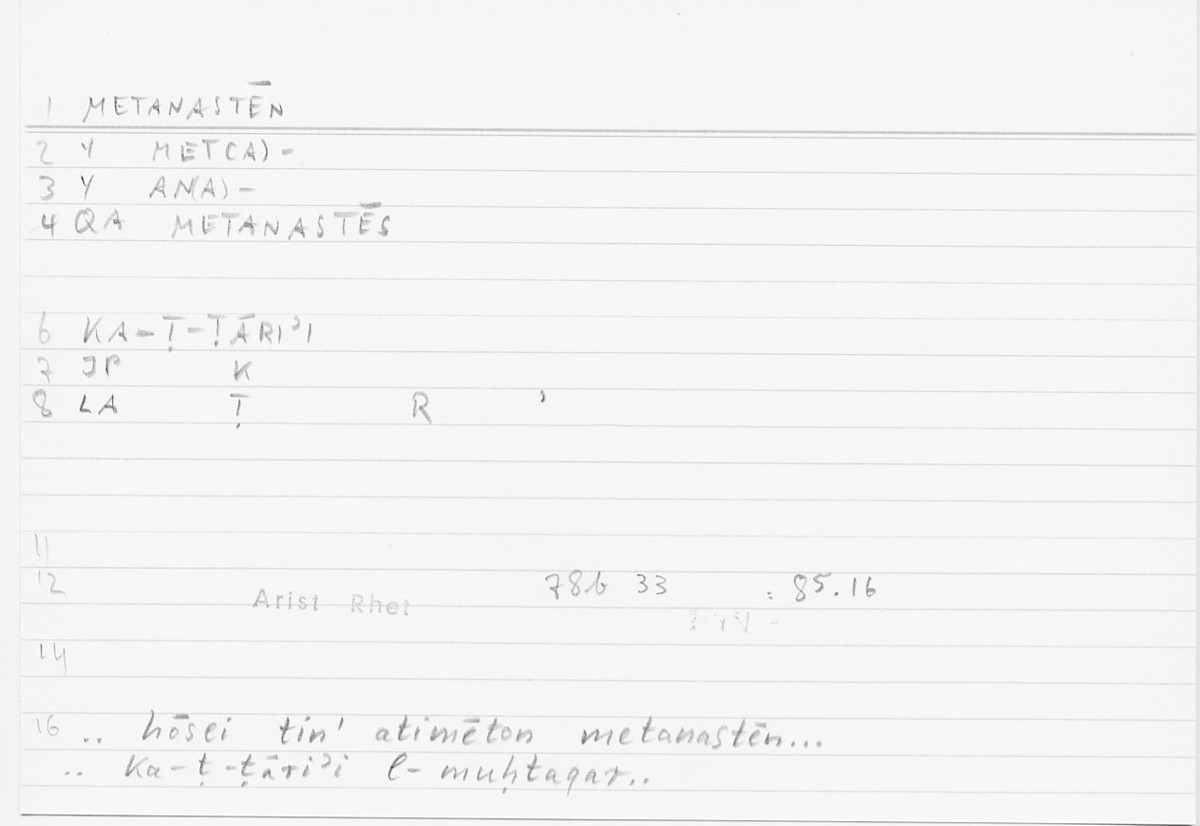 1 METANASTĒN
2 Y MET(A)-
3 Y AN(A)-
4 QA METANASTĒS
6 KA-Ṭ-ṬĀRIʾI
7 JP K
8 LA Ṭ R ʾ
11
12 Arist Rhet 78b 33 : 85.16
14
16 .. hōsei tin' atimēton metanastēn...
.. ka-ṭ-ṭāriʾi l-muḥtaqar..